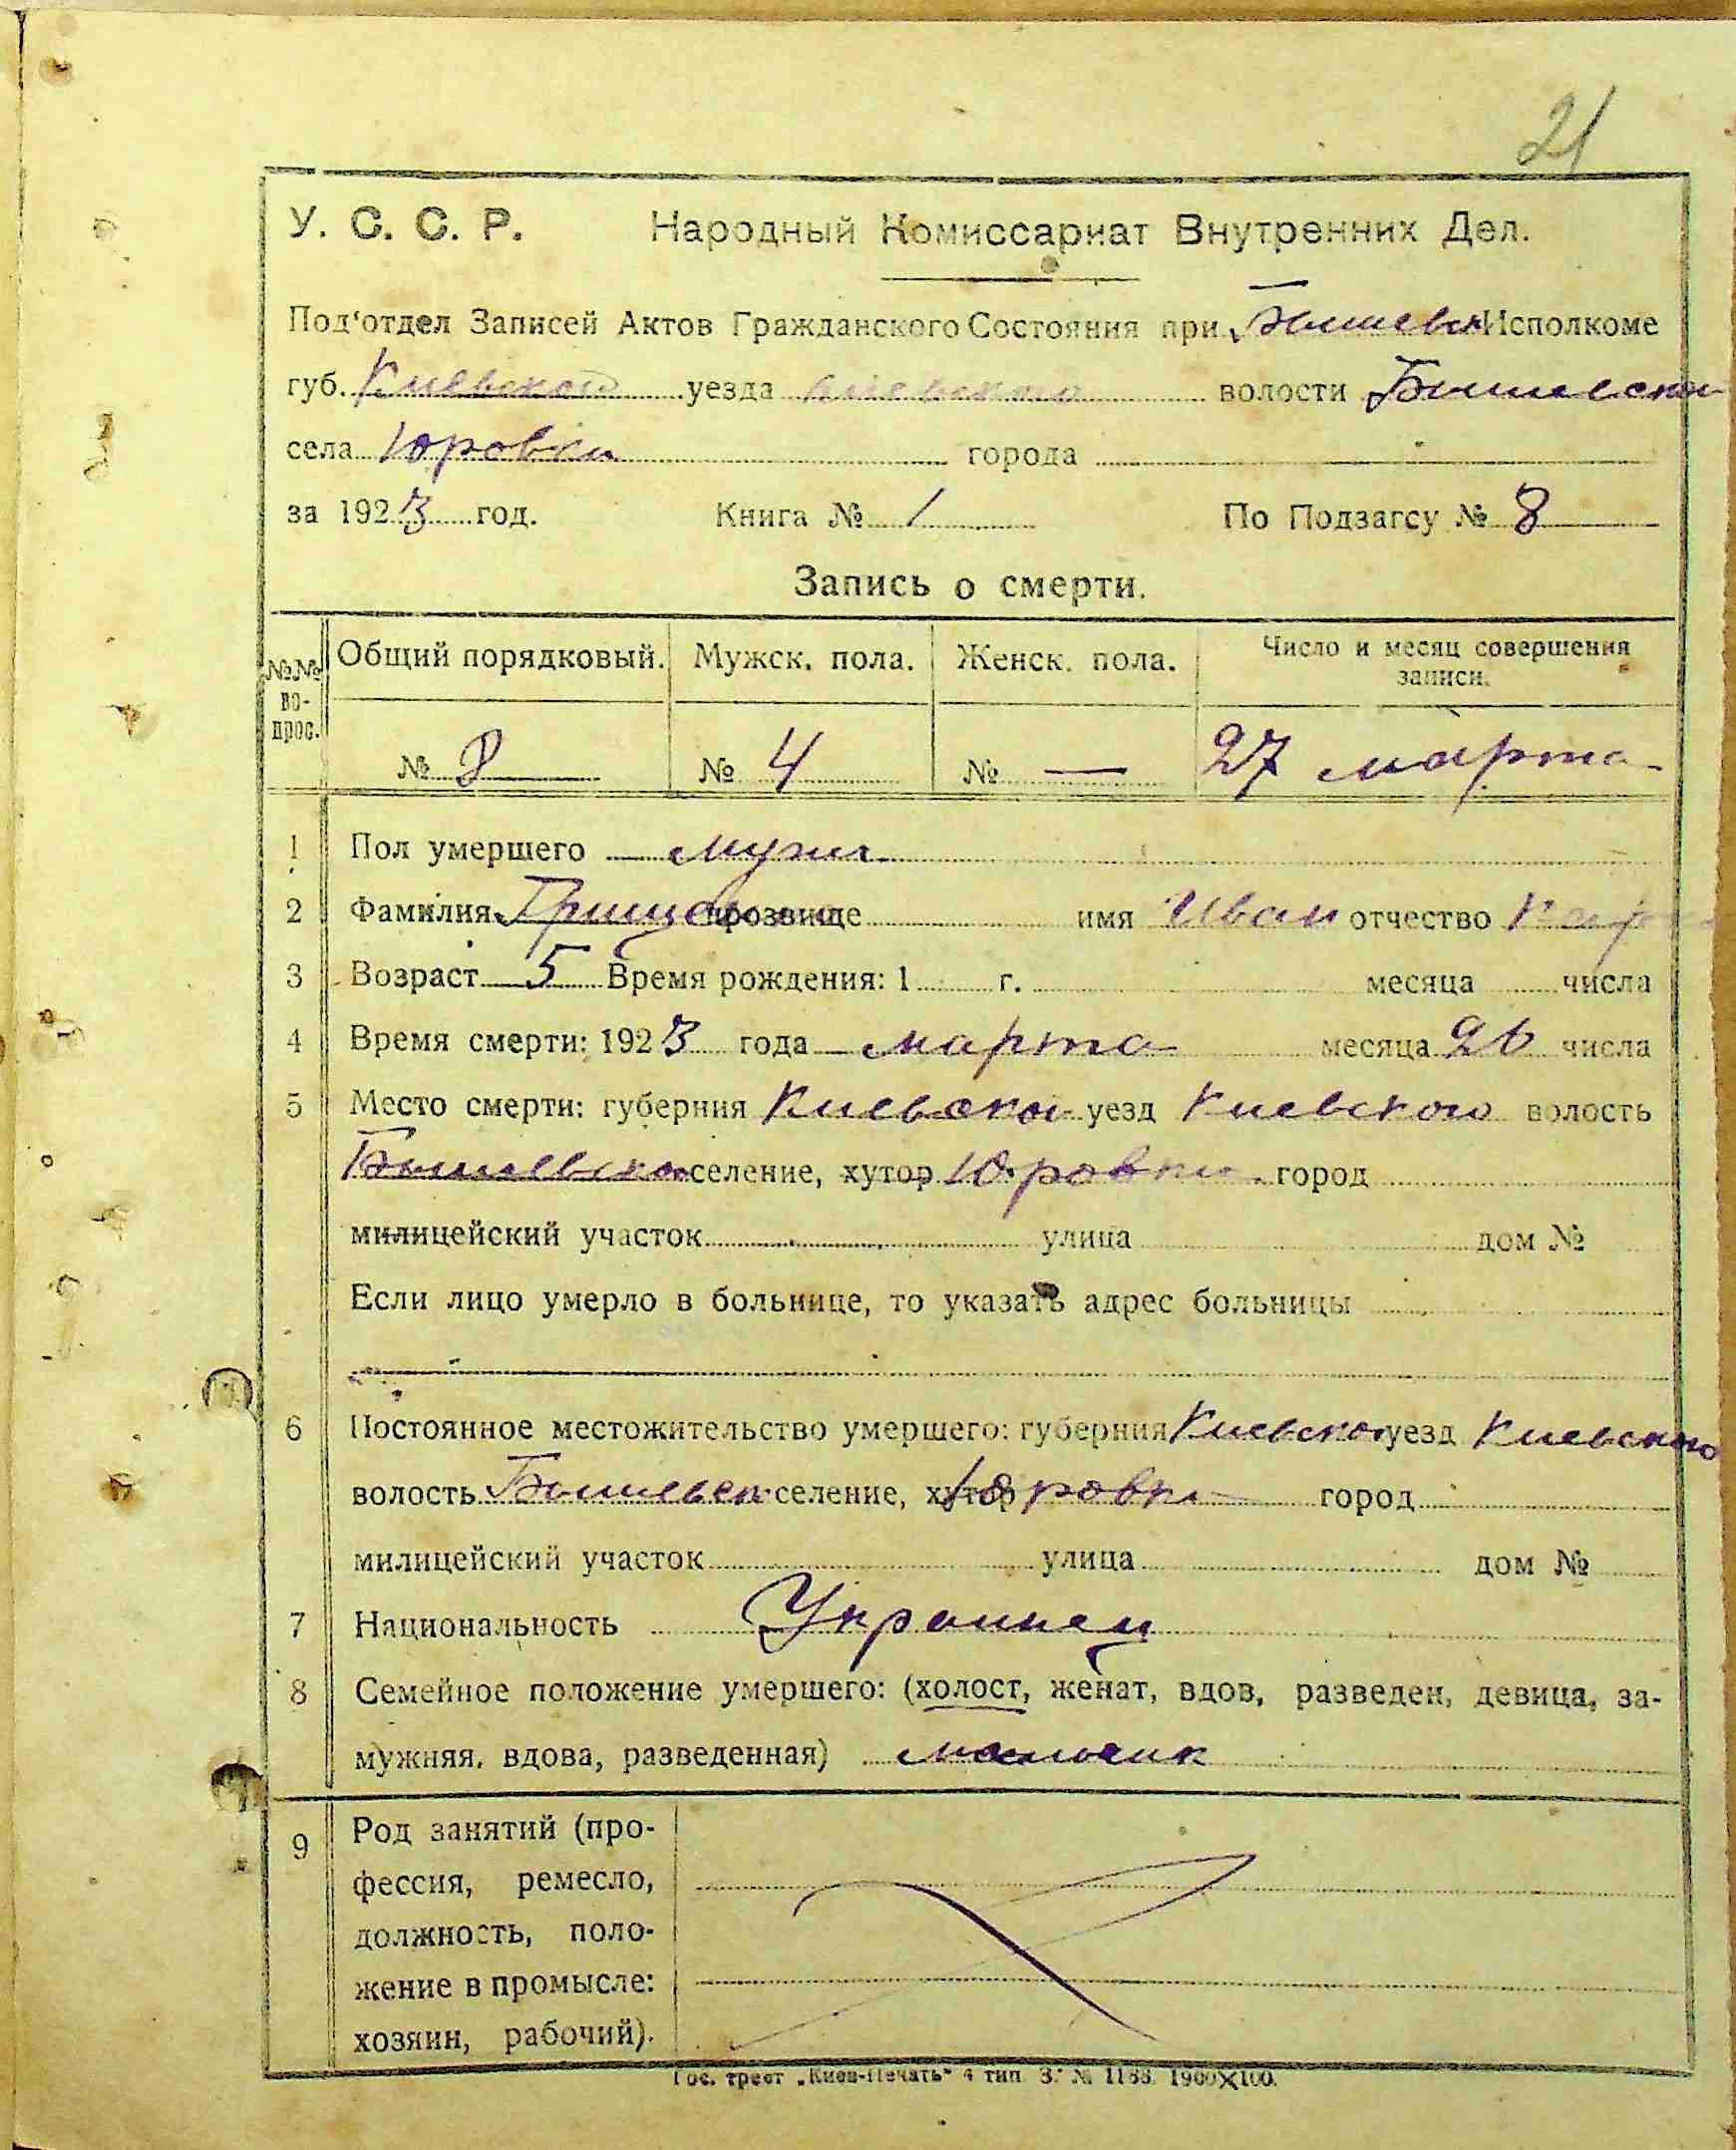 21
У. С. С. Р. Народный Комиссариат Внутренних Дел.
Под'отдел Записей Актов Гражданского Состояния при Бышевск Исполкоме
губ. Киевской уезда Киевского волости Бышевской
села Юровки города
за 1923 год. Книга № 1 По Подзагсу № 8
Запись о смерти.
№№ во-прос. Общий порядковый. Мужск. пола. Женск. пола. Число и месяц совершения записи.
№ 8 № 4 № — 27 марта
1 Пол умершего мужск
2 Фамилия прозвище имя Иван отчество
3 Возраст 5 Время рождения: 1 г. месяца числа
4 Время смерти: 1923 года марта месяца 26 числа
5 Место смерти: губерния Киевской уезд Киевского волость
Бышевской селение, хутор Юровки город
милицейский участок улица дом №
Если лицо умерло в больнице, то указать адрес больницы
6 Постоянное местожительство умершего: губерния Киевской уезд Киевского
волость Бышевск селение, хутор Юровки город
милицейский участок улица дом №
7 Национальность Украинец
8 Семейное положение умершего: (холост, женат, вдов, разведен, девица, за-
мужняя, вдова, разведенная) мальчик
9 Род занятий (про-
фессия, ремесло,
должность, поло-
жение в промысле:
хозяин, рабочий).
Гос. трест „Киев-Печать" 4 тип. З. № 1188. 1900×100.